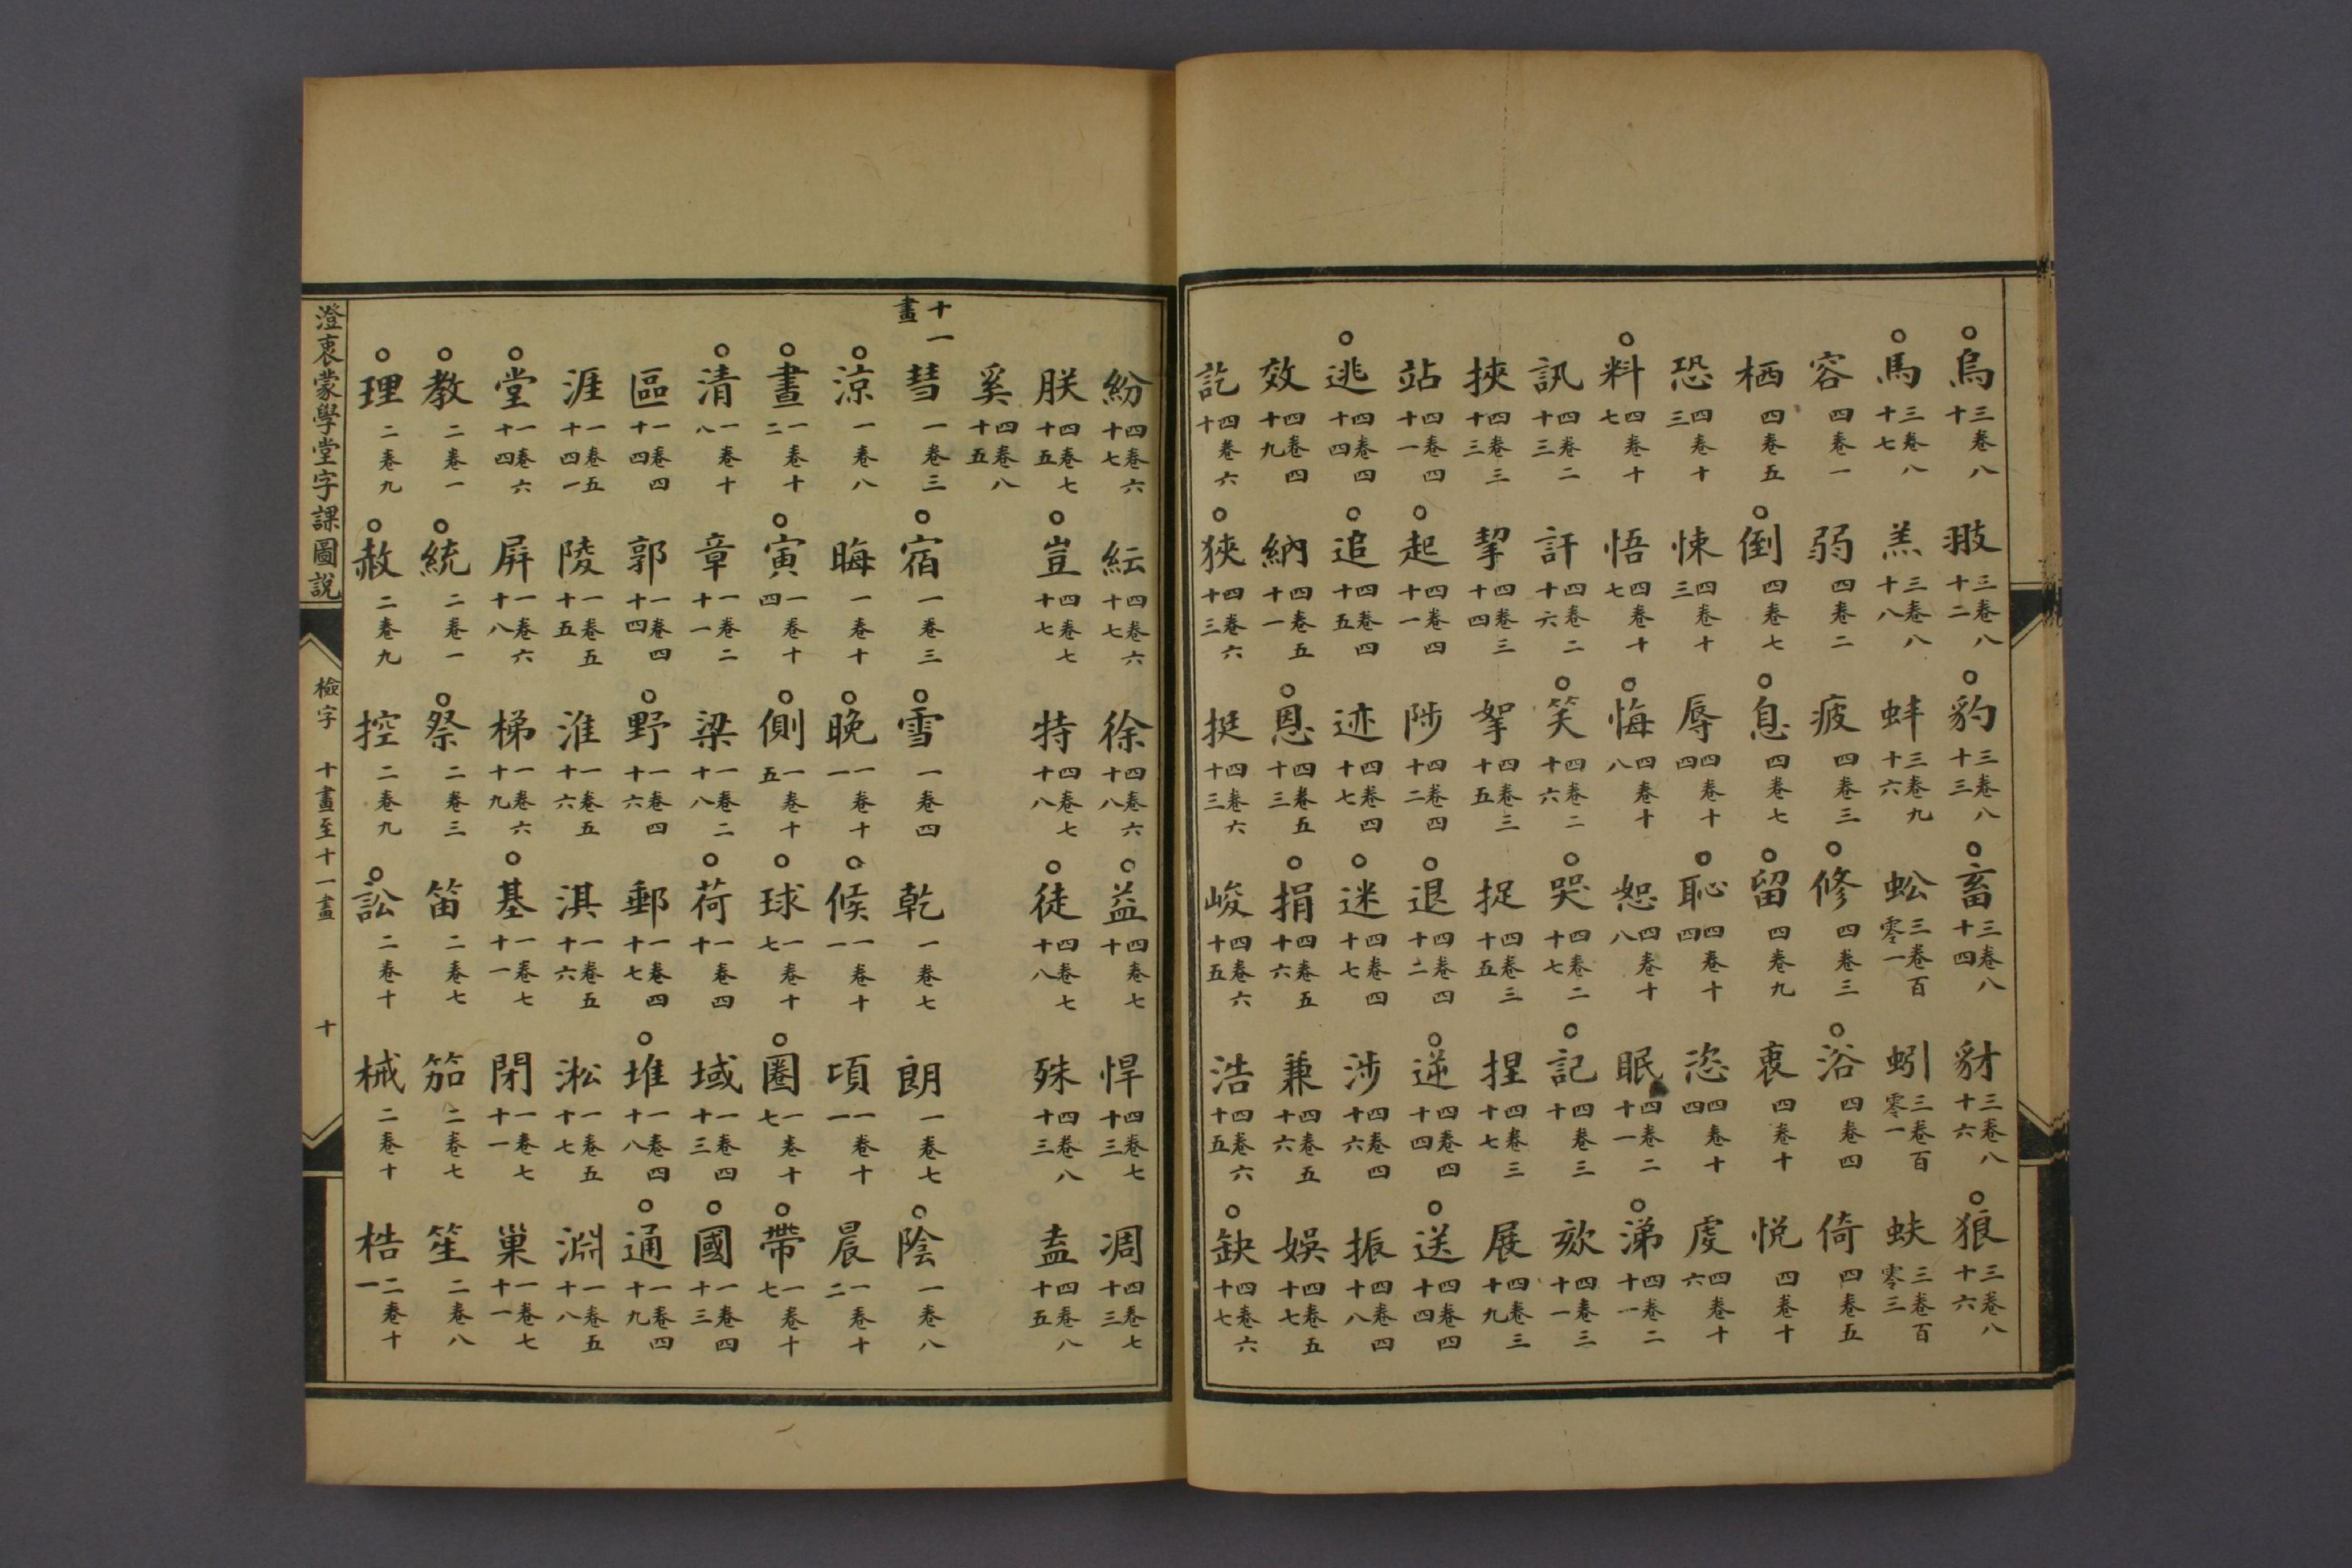 ○烏三卷八十 羖三卷八十二 ○豹三卷八十三 ○畜三卷八十四 豺三卷八十六 ○狼三卷八十六
○馬三卷八十七 羔三卷八十八 蚌三卷九十六 蚣三卷百零一 蚓三卷百零一 蚨三卷百零三
容四卷一 弱四卷二 疲四卷三 ○修四卷三 ○浴四卷四 倚四卷五
栖四卷五 ○倒四卷七 ○息四卷七 ○留四卷九 衷四卷十 悅四卷十
恐四卷十三 悚四卷十三 辱四卷十四 ○恥四卷十四 恣四卷十四 虔四卷十六
○料四卷十七 悟四卷十七 ○悔四卷十八 恕四卷十八 眠四卷二十一 ○涕四卷二十一
訊四卷二十三 訐四卷二十六 ○笑四卷二十六 ○哭四卷二十七 ○記四卷三十 欬四卷三十一
挾四卷三十三 挈四卷三十四 拏四卷三十五 捉四卷三十五 捏四卷三十七 展四卷三十九
站四卷四十一 ○起四卷四十一 陟四卷四十二 ○退四卷四十二 ○逆四卷四十四 ○送四卷四十四
○逃四卷四十四 ○追四卷四十五 迹四卷四十七 ○迷四卷四十七 涉四卷四十六 振四卷四十八
效四卷四十九 納四卷五十一 ○恩四卷五十三 ○捐四卷五十六 兼四卷五十六 娛四卷五十七
訖四卷六十 ○狹四卷六十三 挺四卷六十三 峻四卷六十五 浩四卷六十五 ○缺四卷六十七
紛四卷六十七 紜四卷六十七 徐四卷六十八 ○益四卷七十 悍四卷七十三 凋四卷七十三
朕四卷七十五 ○豈四卷七十七 特四卷七十八 ○徒四卷七十八 殊四卷八十三 盍四卷八十五
奚四卷八十五
十一畫
彗一卷三 ○宿一卷三 ○雪一卷四 乾一卷七 朗一卷七 ○陰一卷八
○涼一卷八 晦一卷十 ○晚一卷十一 ○候一卷十一 頃一卷十一 晨一卷十二
○晝一卷十二 ○寅一卷十四 ○側一卷十五 ○球一卷十七 ○圈一卷十七 ○帶一卷十七
○清一卷十八 章一卷二十一 梁一卷二十八 ○荷一卷四十 域一卷四十三 ○國一卷四十三
區一卷四十四 郭一卷四十四 ○野一卷四十六 郵一卷四十七 ○堆一卷四十八 ○通一卷四十九
涯一卷五十四一 陵一卷五十五 淮一卷五十六 淇一卷五十六 淞一卷五十七 淵一卷五十八
○堂一卷六十四 屏一卷六十八 梯一卷六十九 ○基一卷七十一 閉一卷七十一 巢一卷七十一
○教二卷一 ○統二卷一 ○祭二卷三 笛二卷七 笳二卷七 笙二卷八
○理二卷九 ○赦二卷九 控二卷九 ○訟二卷十 械二卷十 梏二卷十一
澄衷蒙學堂字課圖說 檢字 十畫至十一畫 十